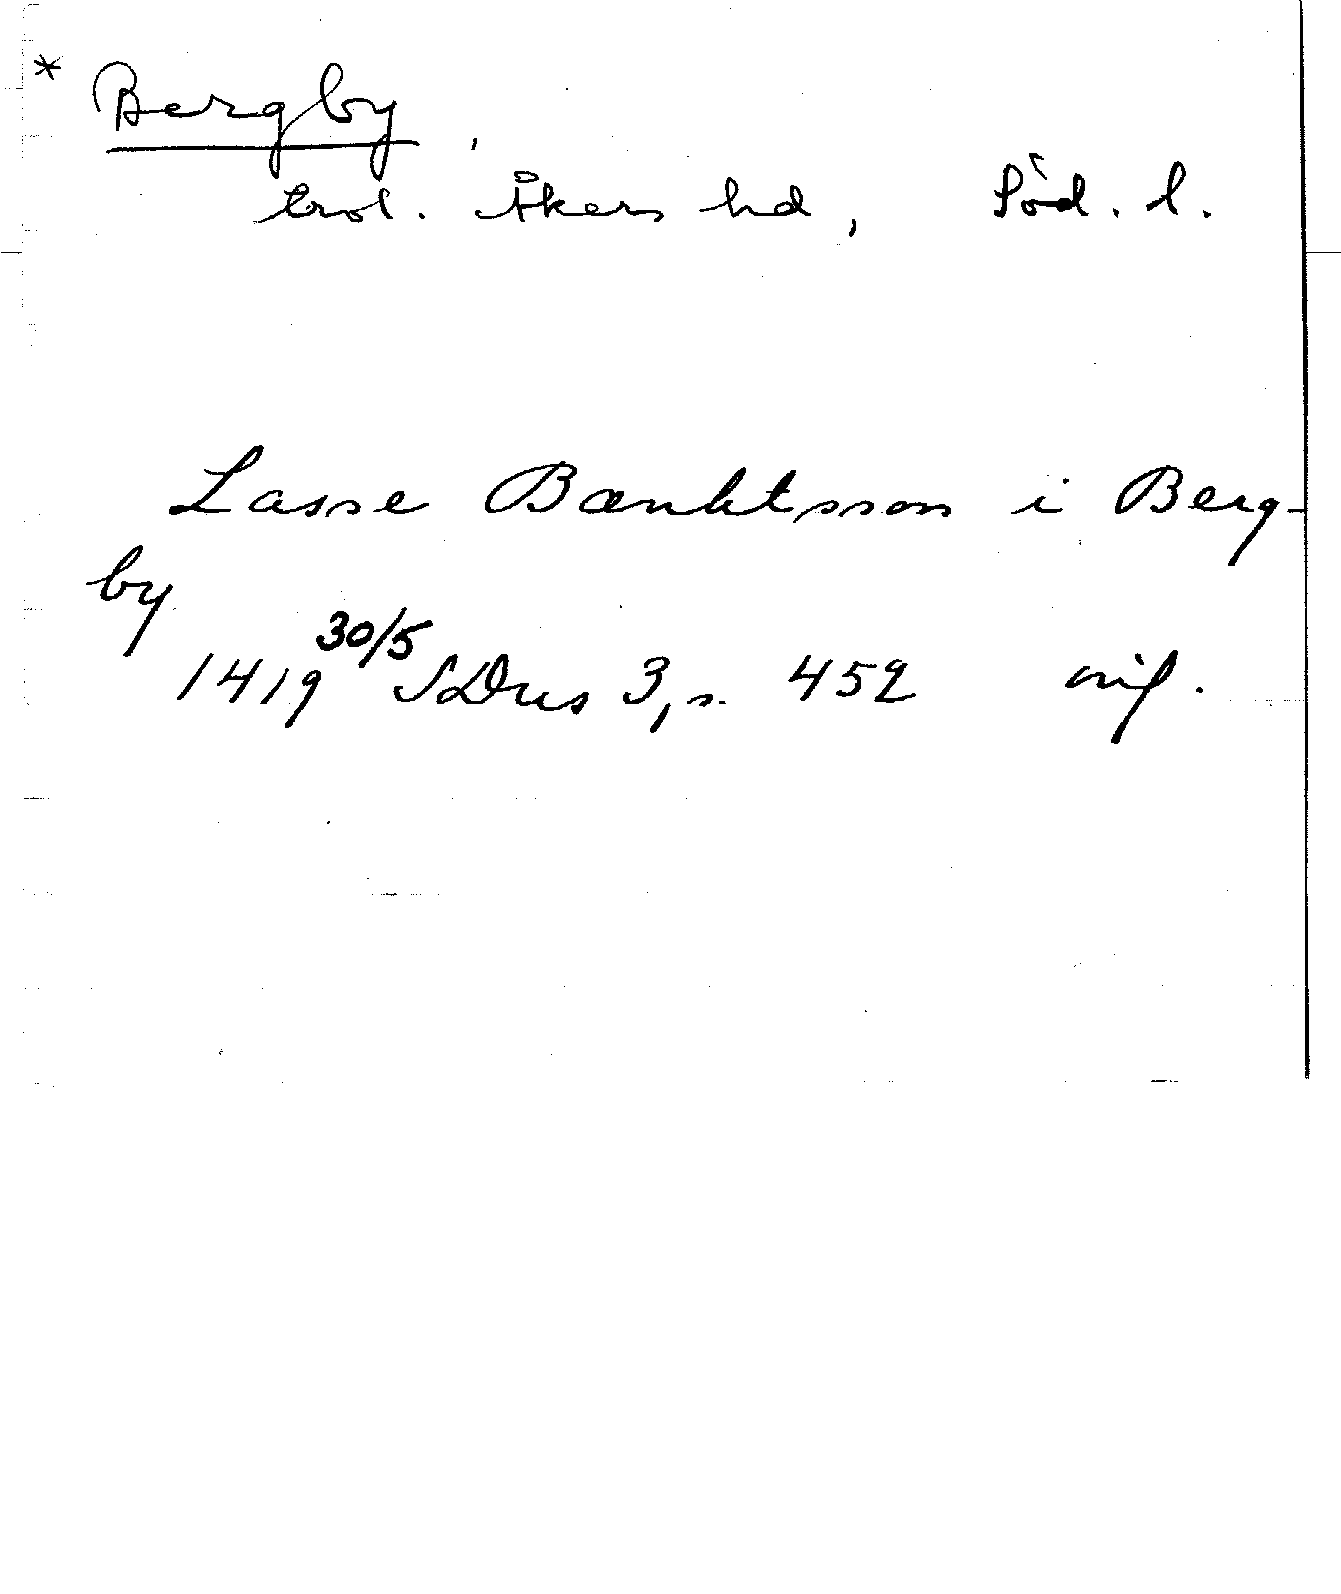 * Bergby,
trol. Åkers hd, Söd. l.
Lasse Bænktsson i Berg-
by
1419 30/5 SDns 3, s. 452 orig.